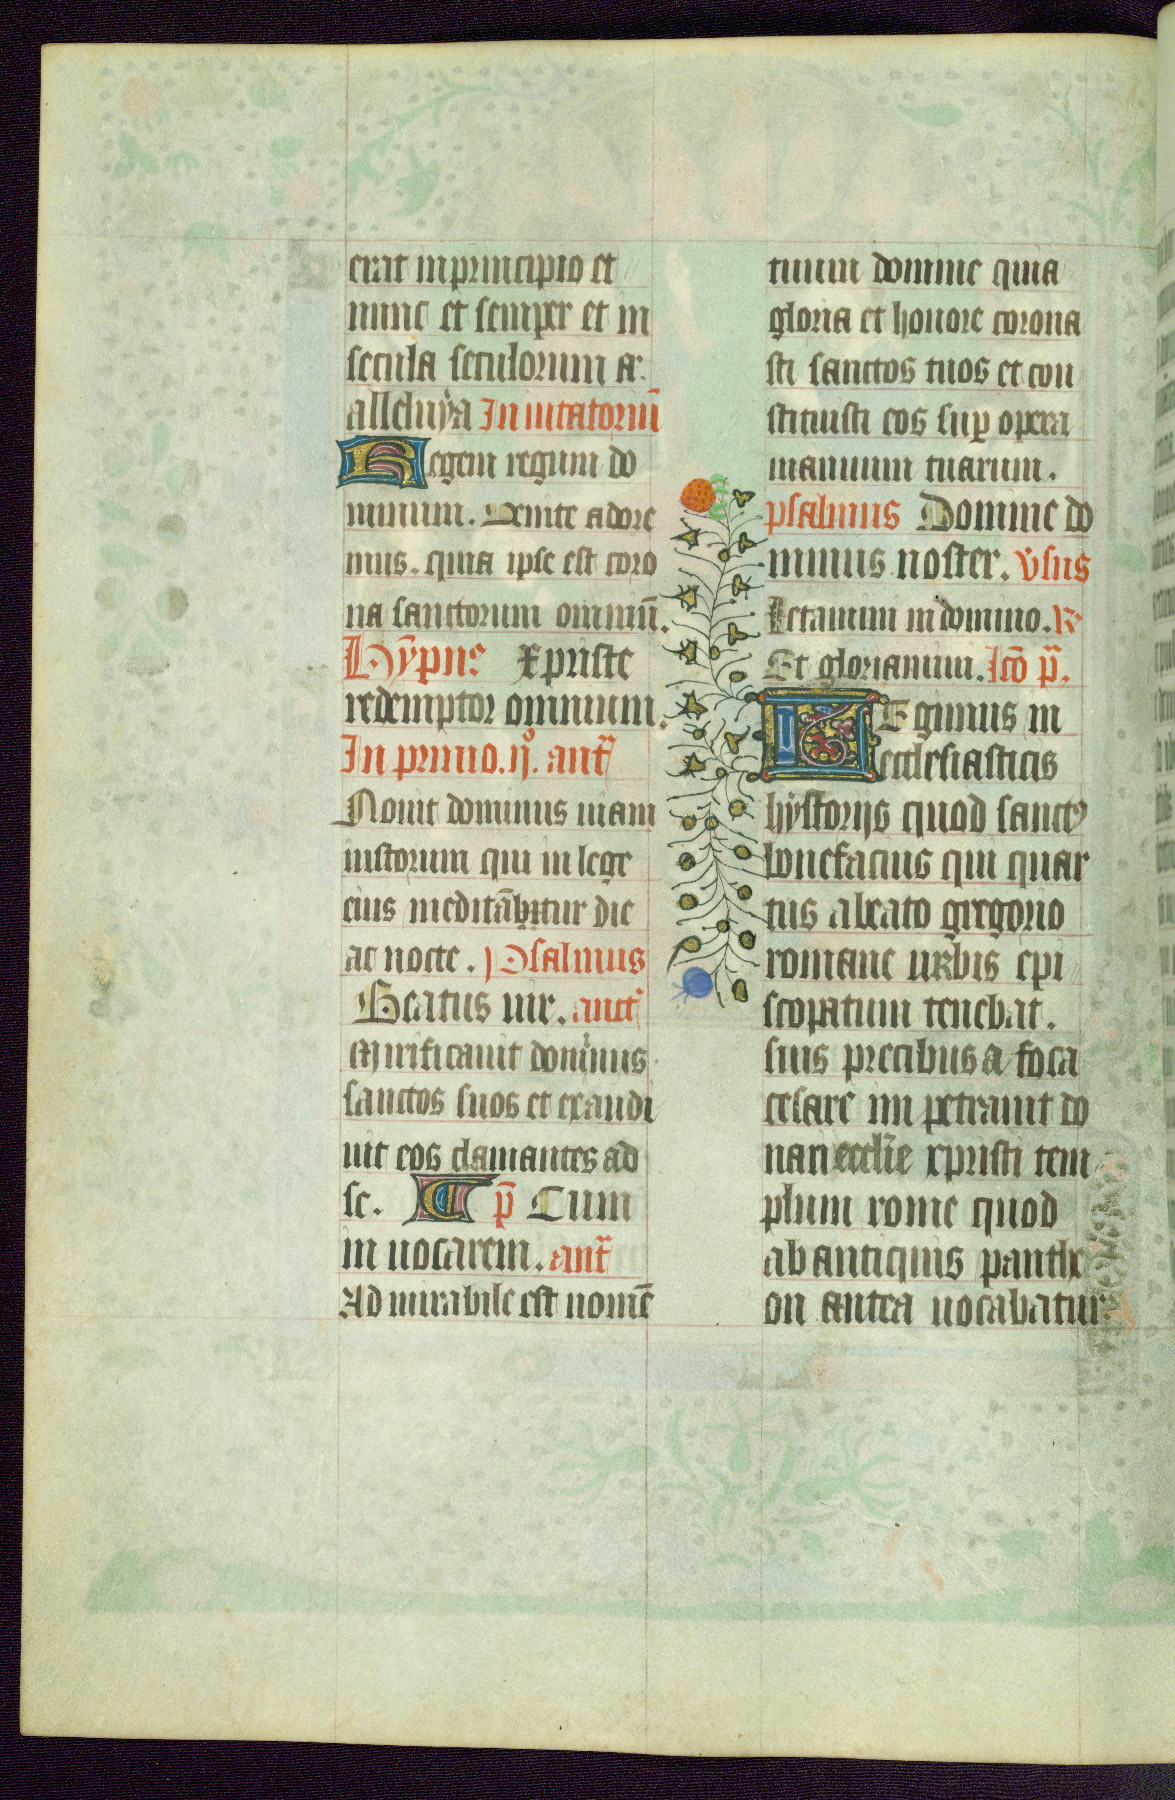 erat in principio et
nunc et semper et in
secula seculorum a.
alleluÿa In uitatoriū
Regem regum do
minum. Venite adore
mus. quia ipse est coro
na sanctorum omniū.
Hȳpne xpriste
redemptor omnium.
In primo. n°. ant
Nouit dominus uiam
iustorum qui in lege
eius meditābitur die
ac nocte. Psalmus
Beatus uir. anct
Mirificauit dominus
sanctos suos et exaudi
uit eos clamantes ad
se. p̄ Cum
in uocarem. ant
Ad mirabile est nomē
tuum domine quia
gloria et honore corona
sti sanctos tuos et con
stituisti eos sup opera
manuum tuarum.
psalmus Domine do
minus noster. v̄sus
Letamini in domino. R
Et gloriamini. lcō p̄.
LEgimus in
ecclesiasticis
hÿstorijs quod sanctꝰ
bonefacius qui quar
tus a beato gregorio
romane urbis epi
scopatum tenebat.
suis precibus a foca
cesare im petrauit do
nari ecclīe xpristi tem
plum rome quod
ab antiquis panthe
on antea uocabatur.